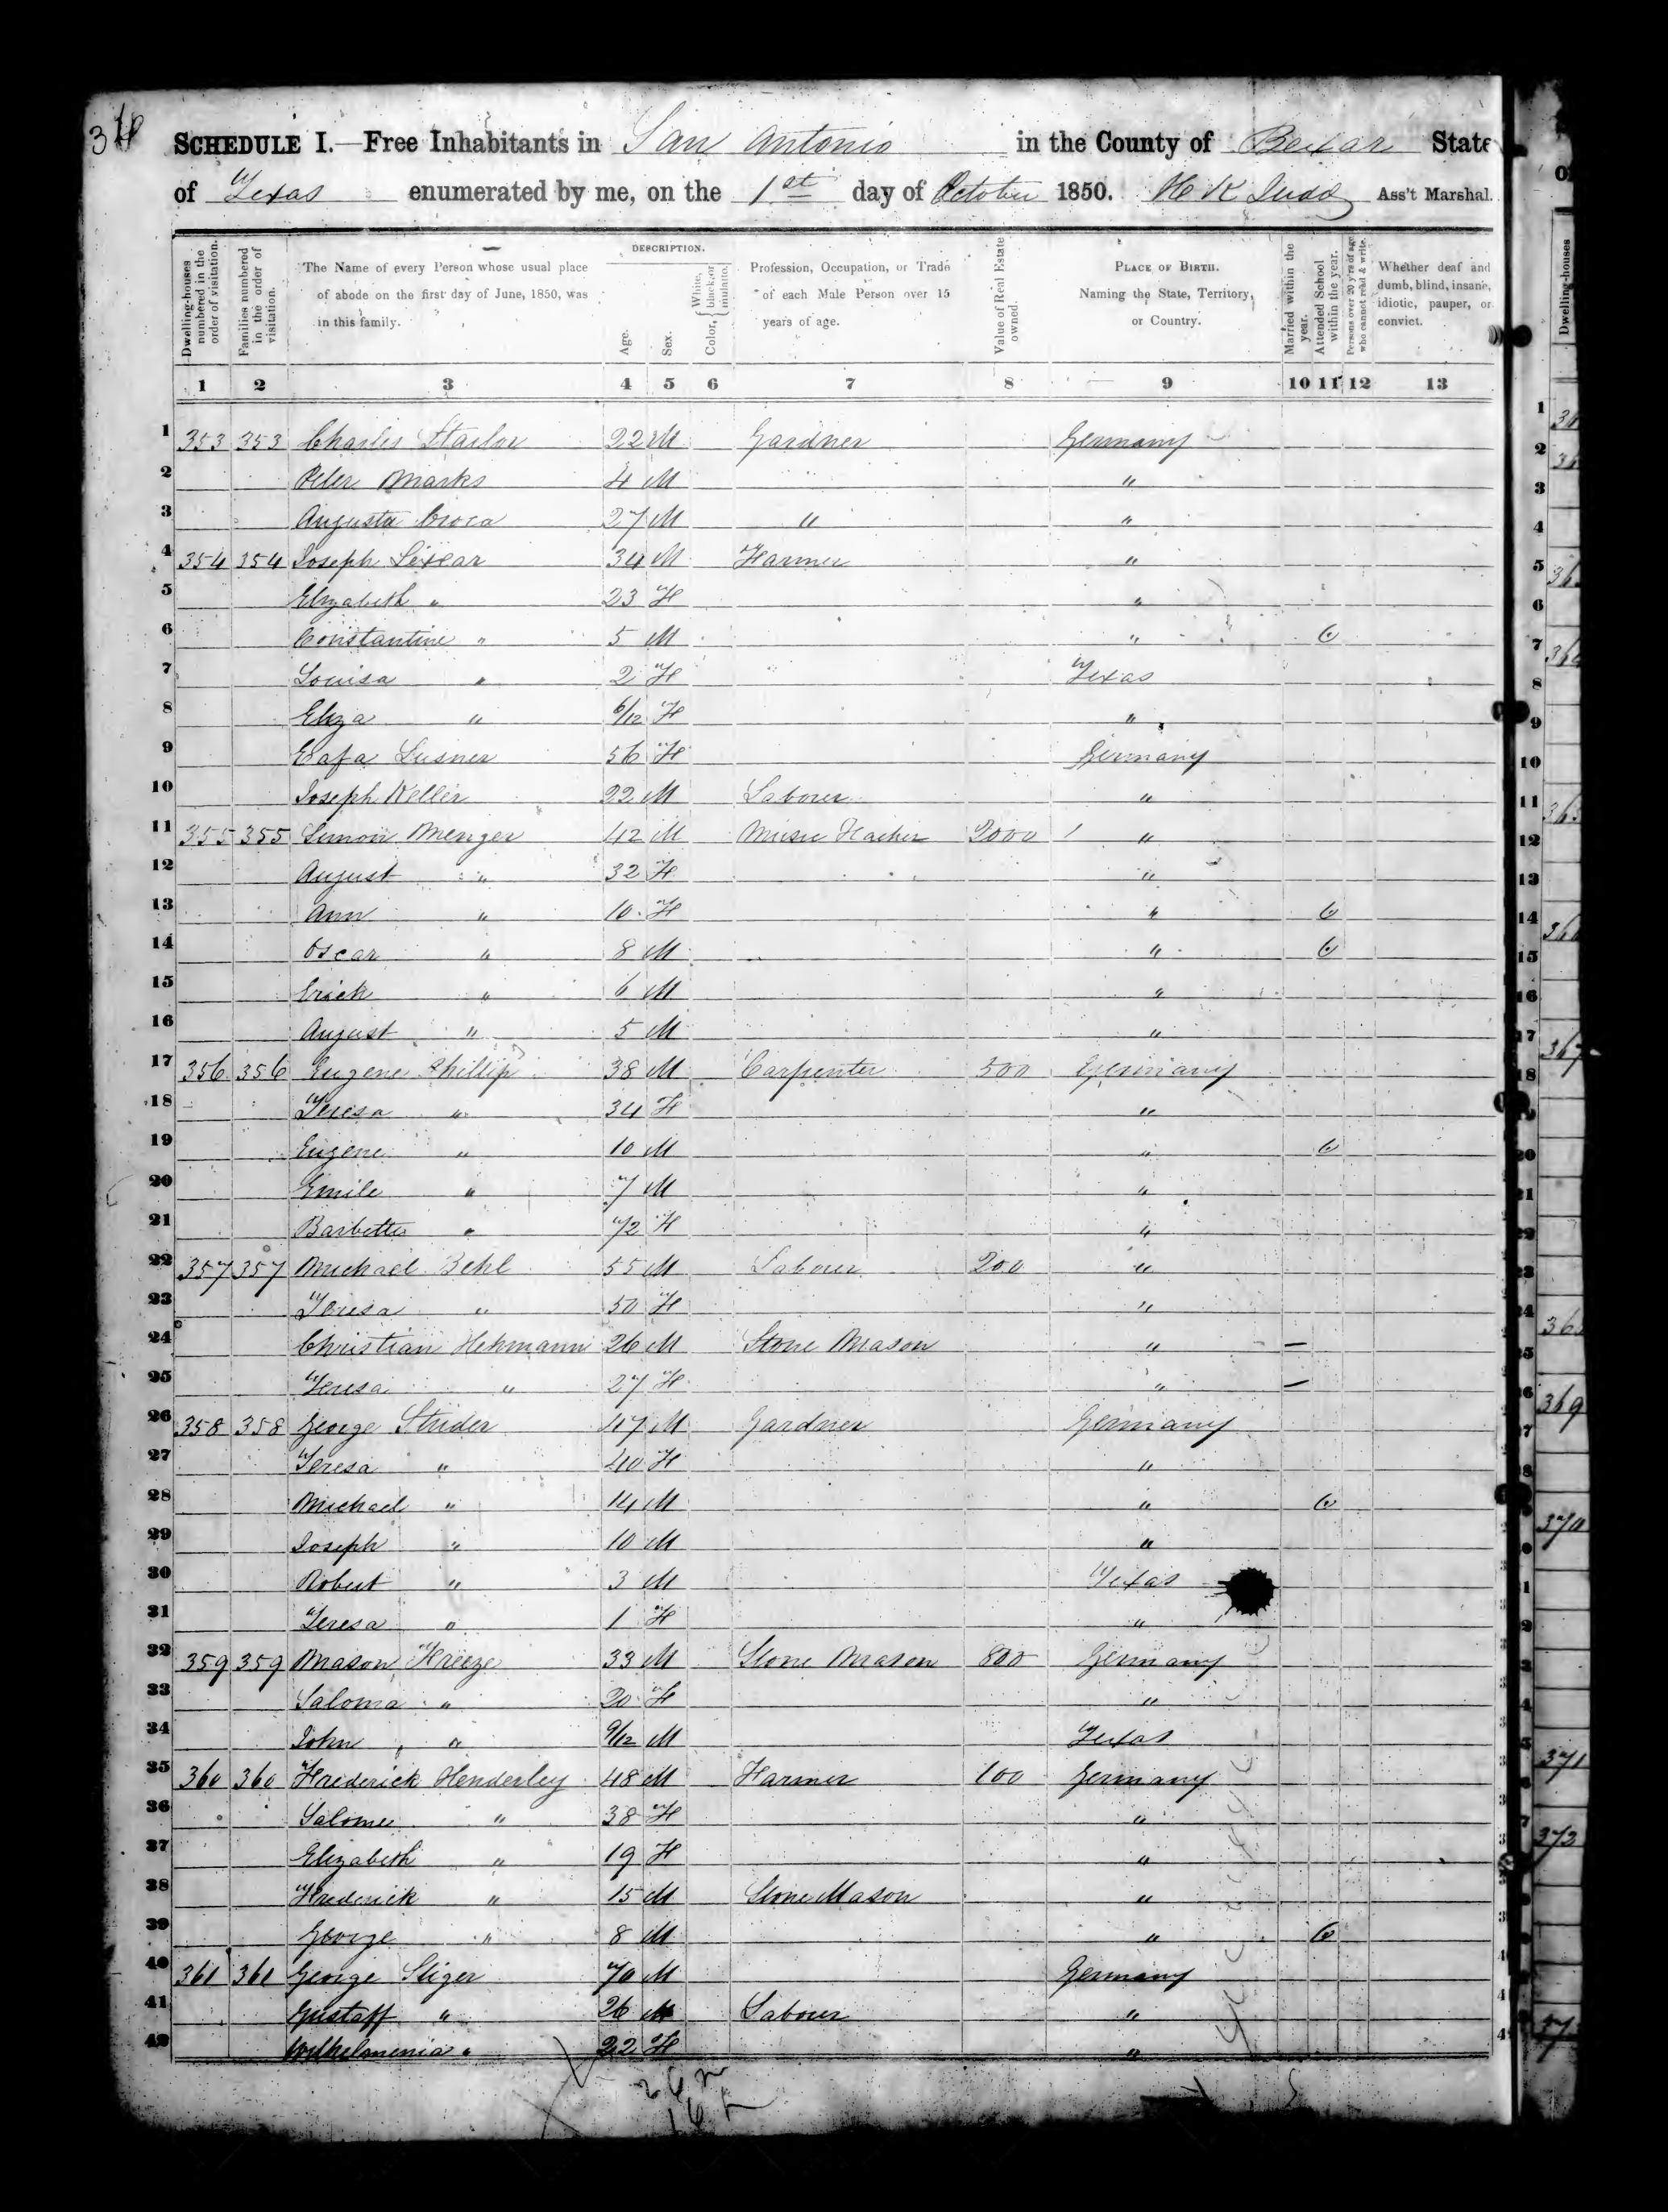 SCHEDULE I.—Free Inhabitants in San Antonio in the County of Bexar State
of Texas enumerated by me, on the 1st day of October 1850. H K Judd Ass't Marshal.
Dwelling-houses numbered in the order of visitation.
Families numbered in the order of visitation.
The Name of every Person whose usual place of abode on the first day of June, 1850, was in this family.
DESCRIPTION.
Age.
Sex.
Color, White, black, or mulatto.
Profession, Occupation, or Trade of each Male Person over 15 years of age.
Value of Real Estate owned.
PLACE OF BIRTH. Naming the State, Territory, or Country.
Married within the year.
Attended School within the year.
Persons over 20 y'rs of age who cannot read & write.
Whether deaf and dumb, blind, insane, idiotic, pauper, or convict.
1 2 3 4 5 6 7 8 9 10 11 12 13
1 353 353 Charles 22 M Gardner Germany
2 Peter Marks 4 M "
3 Augusta 27 M " "
4 354 354 Joseph 34 M Farmer "
5 Elizabeth " 23 F "
6 Constantine " 5 M "
7 Louisa " 2 F Texas
8 Eliza " 6/12 F "
9 56 F Germany
10 Joseph Weller 22 M Labourer "
11 355 355 Simon Menger 42 M Music Teacher 2000 "
12 August " 32 F "
13 Ann " 10 F "
14 Oscar " 8 M "
15 Erick " 6 M "
16 August " 5 M "
17 356 356 Eugene Phillip 38 M Carpenter 500 Germany
18 Teresa " 34 F "
19 Eugene " 10 M "
20 Emile " 7 M "
21 Barbette " F "
22 357 357 Michael Behl 55 M Labourer 200 "
23 Teresa " 50 F "
24 Christian Hehmann 26 M Stone Mason " —
25 Teresa " 27 F " —
26 358 358 George Strider 47 M Gardner Germany
27 Teresa " 40 F "
28 Michael " 14 M "
29 Joseph " 10 M "
30 Robert " 3 M Texas
31 Teresa " 1 F "
32 359 359 Mason Freeze 33 M Stone Mason 800 Germany
33 Saloma " 20 F "
34 John " 9/12 M Texas
35 360 360 Frederick Henderley 48 M Farmer 100 Germany
36 Salome " 38 F "
37 Elizabeth " 19 F "
38 Frederick " 15 M Stone Mason "
39 George " 8 M "
40 361 361 George Stiger 70 M Germany
41 Gustaff " 26 M Labourer "
42 Wilhelmenia " 22 F "
26 m
16 f